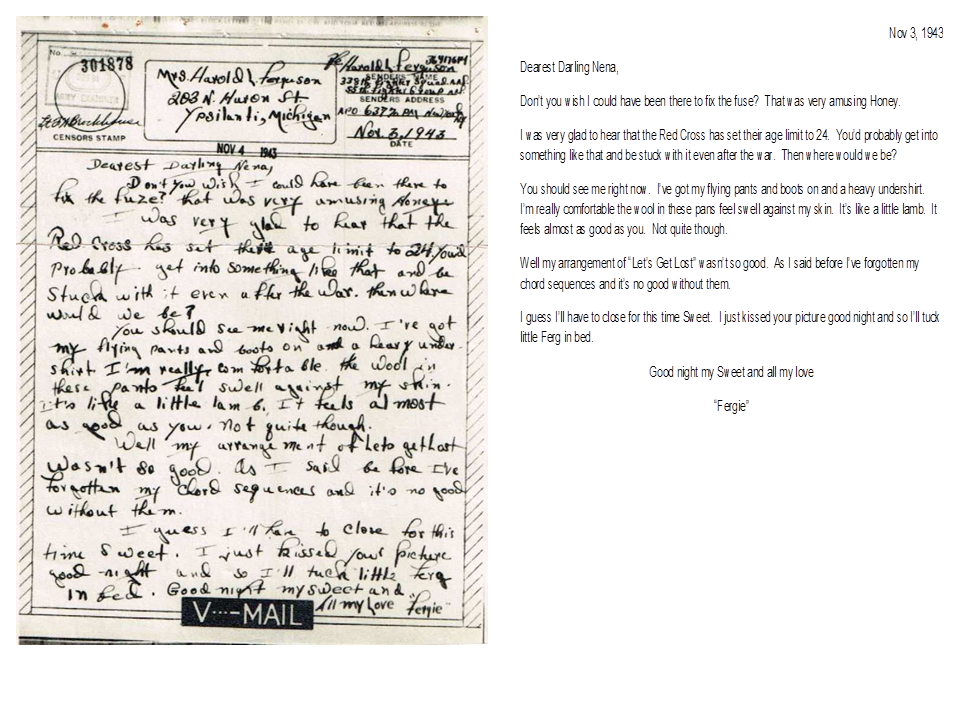 No.
301878
CENSORS STAMP
Mrs. Harold L. Ferguson
203 N. Huron St.
Ypsilanti, Michigan
Harold L. Ferguson
SENDERS NAME
SENDERS ADDRESS
Nov. 3, 1943
DATE
NOV 4 1943
Dearest Darling Nena,
Don't you wish I could have been there to
fix the fuze? that was very amusing Honey.
I was very glad to hear that the
Red Cross has set their age limit to 24 you'd
probably get into something like that and be
stuck with it even after the war. then where
would we be?
You should see me right now. I've got
my flying pants and boots on and a heavy under-
shirt I'm really comfortable. the wool in
these pants feel swell against my skin.
it's like a little lamb. It feels almost
as good as you. not quite though.
Well my arrangement of lets get lost
wasn't so good. As I said before I've
forgotten my chord sequences and it's no good
without them.
I guess I'll have to close for this
time sweet. I just kissed your picture
good-night and so I'll tuck little Ferg
in bed. Good night my sweet and
all my love "Fergie"
V···-MAIL
Nov 3, 1943
Dearest Darling Nena,
Don't you wish I could have been there to fix the fuse?  That was very amusing Honey.
I was very glad to hear that the Red Cross has set their age limit to 24.  You'd probably get into
something like that and be stuck with it even after the war.  Then where would we be?
You should see me right now.  I've got my flying pants and boots on and a heavy undershirt.
I'm really comfortable the wool in these pans feel swell against my skin.  It's like a little lamb.  It
feels almost as good as you.  Not quite though.
Well my arrangement of "Let's Get Lost" wasn't so good.  As I said before I've forgotten my
chord sequences and it's no good without them.
I guess I'll have to close for this time Sweet.  I just kissed your picture good night and so I'll tuck
little Ferg in bed.
Good night my Sweet and all my love
"Fergie"